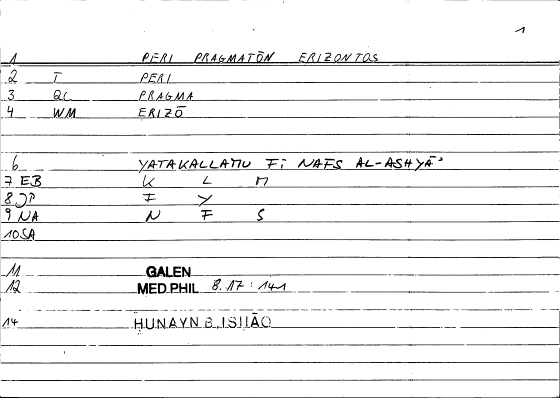 1
1 PERI PRAGMATŌN ERIZONTOS
2 T PERI
3 QC PRAGMA
4 WM ERIZŌ
6 YATAKALLAMU FĪ NAFS AL-ASHYĀʾ
7 EB K L M
8 JP F Y
9 NA N F S
10 SA
11 GALEN
12 MED.PHIL 8.17 : 14-1
14 ḤUNAYN B. ISḤĀQ